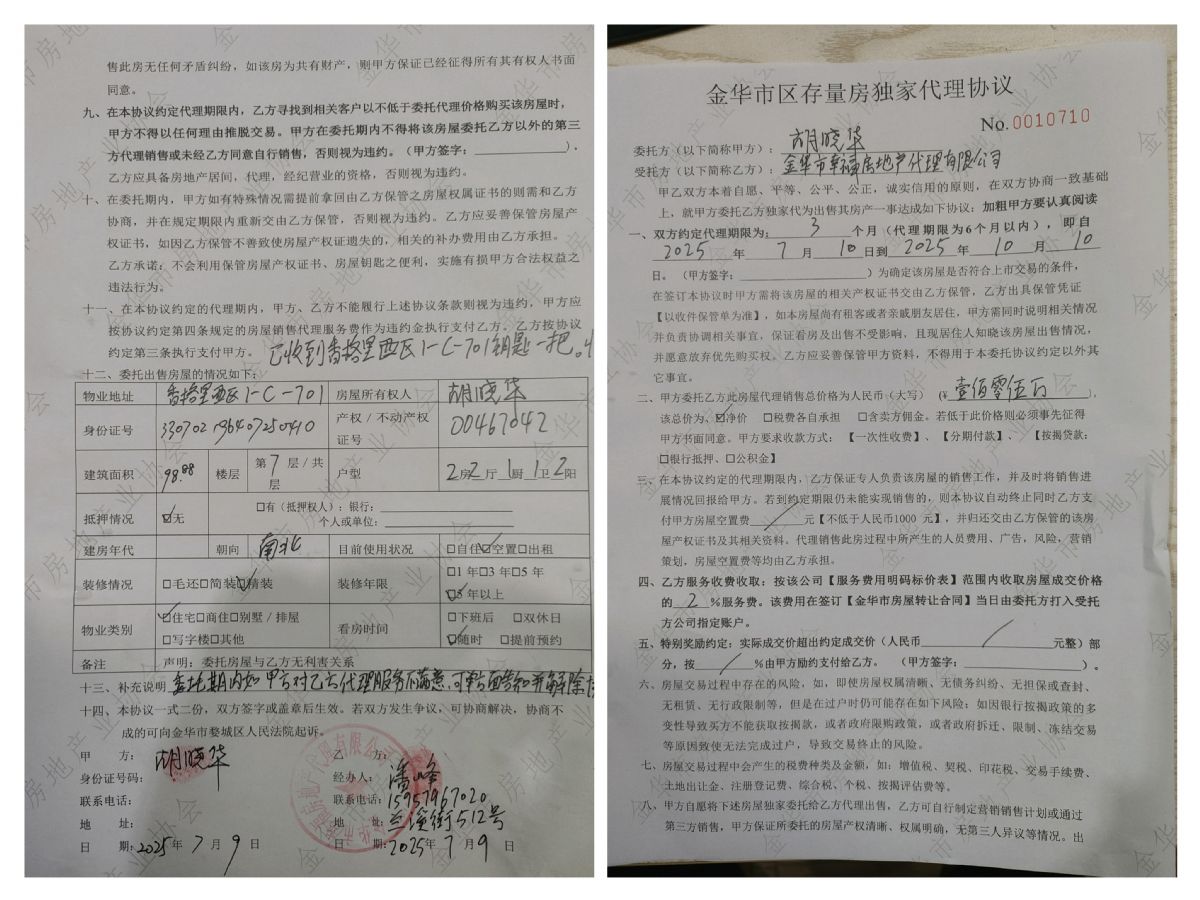 售此房无任何矛盾纠纷，如该房为共有财产，则甲方保证已经征得所有其有权人书面
同意。
九、在本协议约定代理期限内，乙方寻找到相关客户以不低于委托代理价格购买该房屋时，
甲方不得以任何理由推脱交易。甲方在委托期内不得将该房屋委托乙方以外的第三
方代理销售或未经乙方同意自行销售，否则视为违约。（甲方签字：____________）.
乙方应具备房地产居间，代理，经纪营业的资格，否则视为违约。
十、在委托期内，甲方如有特殊情况需提前拿回由乙方保管之房屋权属证书的则需和乙方
协商，并在规定期限内重新交由乙方保管，否则视为违约。乙方应妥善保管房屋产
权证书，如因乙方保管不善致使房屋产权证遗失的，相关的补办费用由乙方承担。
乙方承诺：不会利用保管房屋产权证书、房屋钥匙之便利，实施有损甲方合法权益之
违法行为。
十一、在本协议约定的代理期内，甲方、乙方不能履行上述协议条款则视为违约，甲方应
按协议约定第四条规定的房屋销售代理服务费作为违约金执行支付乙方。乙方按协议
约定第三条执行支付甲方。 已收到香格里西区1-C-701钥匙一把。
十二、委托出售房屋的情况如下：
物业地址 香格里西区1-C-701 房屋所有权人 胡晓华
身份证号 330702196407250410 产权/不动产权证号 00467042
建筑面积 98.88 楼层 第7层/共 层 户型 2房2厅1厨1卫2阳
抵押情况 ☑无 □有（抵押权人）：银行：____________
个人或单位：____________
建房年代 朝向 南北 目前使用状况 □自住☑空置□出租
装修情况 □毛还□简装☑精装 装修年限 □1年□3年□5年
☑5年以上
物业类别 ☑住宅□商住□别墅/排屋 看房时间 □下班后 □双休日
□写字楼□其他 ☑随时 □提前预约
备注 声明：委托房屋与乙方无利害关系
十三、补充说明 委托期内如甲方对乙方代理服务不满意，可单方面告知并解除
十四、本协议一式二份，双方签字或盖章后生效。若双方发生争议，可协商解决，协商不
成的可向金华市婺城区人民法院起诉。
甲 方：胡晓华
身份证号码：
联系电话：
地 址：
日 期：2025年7月9日
乙 方：
经办人：潘峰
联系电话：15957967020
地 址：兰溪街512号
日 期：2025年7月9日
金华市区存量房独家代理协议
No.0010710
委托方（以下简称甲方）：胡晓华
受托方（以下简称乙方）：金华市幸福房地产代理有限公司
甲乙双方本着自愿、平等、公平、公正，诚实信用的原则，在双方协商一致基础
上，就甲方委托乙方独家代为出售其房产一事达成如下协议：加粗甲方要认真阅读
一、双方约定代理期限为：3个月（代理期限为6个月以内），即自
2025年7月10日到2025年10月10
日。（甲方签字：____________）为确定该房屋是否符合上市交易的条件，
在签订本协议时甲方需将该房屋的相关产权证书交由乙方保管，乙方出具保管凭证
【以收件保管单为准】，如本房屋尚有租客或者亲戚朋友居住，甲方需同时说明相关情况
并负责协调相关事宜，保证看房及出售不受影响，且现居住人知晓该房屋出售情况，
并愿意放弃优先购买权。乙方应妥善保管甲方资料，不得用于本委托协议约定以外其
它事宜。
二、甲方委托乙方此房屋代理销售总价格为人民币（大写）（¥壹佰零伍万），
该总价为，☑净价 □税费各自承担 □含卖方佣金。若低于此价格则必须事先征得
甲方书面同意。甲方要求收款方式：【一次性收费】、【分期付款】、【按揭贷款：
□银行抵押、□公积金】
三、在本协议约定的代理期限内，乙方保证专人负责该房屋的销售工作，并及时将销售进
展情况回报给甲方。若到约定期限仍未能实现销售的，则本协议自动终止同时乙方支
付甲方房屋空置费 / 元【不低于人民币1000 元】，并归还交由乙方保管的该房
屋产权证书及其相关资料。代理销售此房过程中所产生的人员费用、广告，风险，营销
策划，房屋空置费等均由乙方承担。
四、乙方服务收费收取：按该公司【服务费用明码标价表】范围内收取房屋成交价格
的2%服务费。该费用在签订【金华市房屋转让合同】当日由委托方打入受托
方公司指定账户。
五、特别奖励约定：实际成交价超出约定成交价（人民币 / 元整）部
分，按 / %由甲方励约支付给乙方。（甲方签字：____________）。
六、房屋交易过程中存在的风险，如，即使房屋权属清晰、无债务纠纷、无担保或查封、
无租赁、无行政限制等，但是在过户时仍可能存在如下风险：如因银行按揭政策的多
变性导致买方不能获取按揭款，或者政府限购政策，或者政府拆迁、限制、冻结交易
等原因致使无法完成过户，导致交易终止的风险。
七、房屋交易过程中会产生的税费种类及金额，如：增值税、契税、印花税、交易手续费、
土地出让金、注册登记费、综合税、个税、按揭评估费等。
八、甲方自愿将下述房屋独家委托给乙方代理出售，乙方可自行制定营销销售计划或通过
第三方销售，甲方保证所委托的房屋产权清晰、权属明确，无第三人异议等情况。出